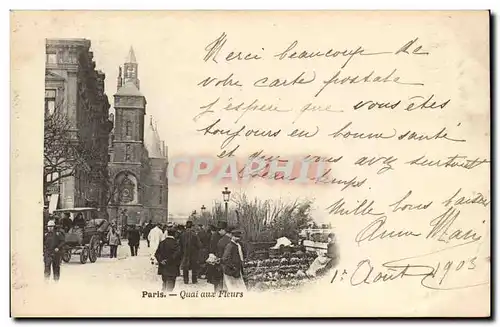 Merci beaucoup de
votre carte postale
j'espère que vous êtes
toujours en bonne santé
et que vous avez surtout
beau temps
Mille bons baisers
Anne Marie
1r Août 1903
CPARAMA
Paris. — Quai aux Fleurs